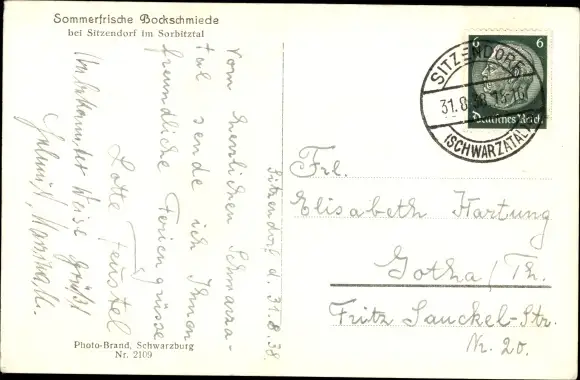 Sommerfrische Bockschmiede
bei Sitzendorf im Sorbitztal
Sitzendorf d. 31.8.38.
Vom herrlichen Schwarza-
tal sende ich Ihnen
freundliche Feriengrüsse
Lotte Feustel
Unbekannter Weise grüßt
Photo-Brand, Schwarzburg
Nr. 2109
6 6
Deutsches Reich
SITZENDORF
31.8.38
(SCHWARZATAL)
Frl.
Elisabeth Hartung
Gotha/Th.
Fritz Sauckel-Str.
Nr. 20.